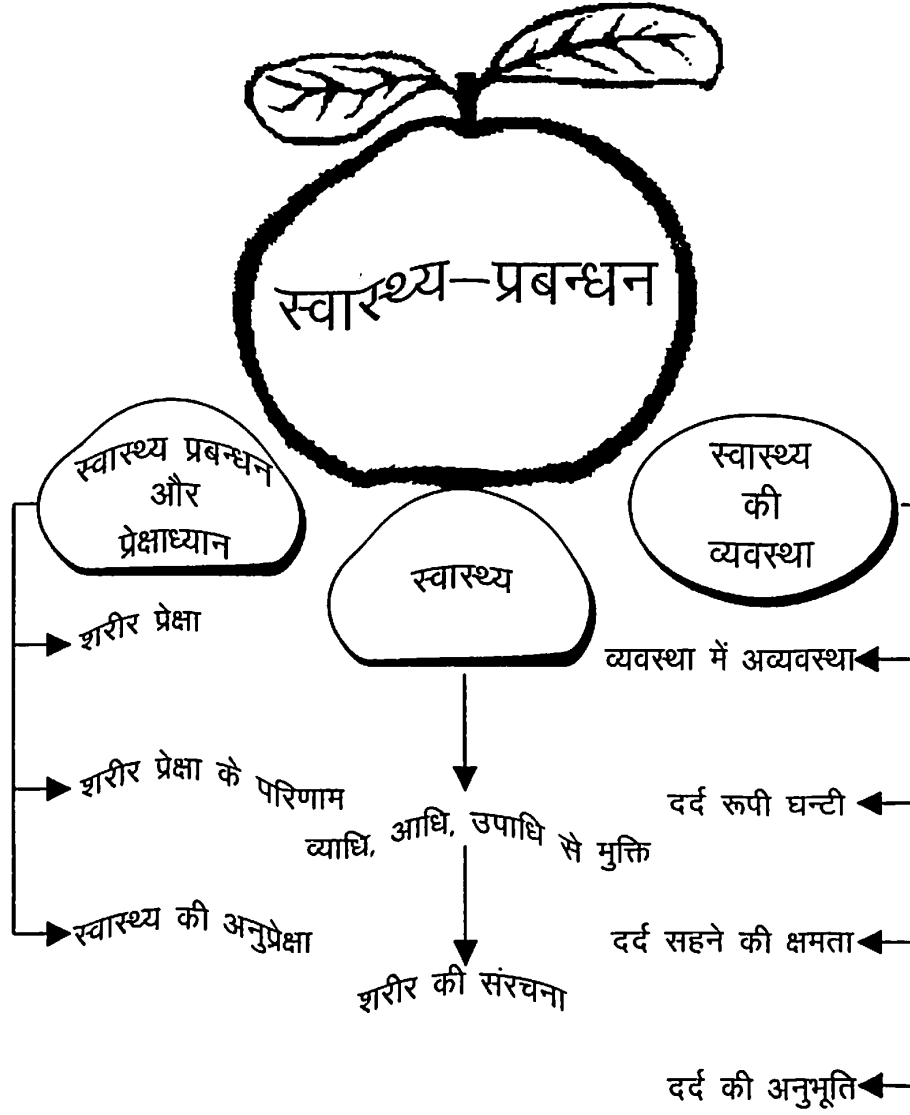 स्वास्थ्य–प्रबन्धन
स्वास्थ्य प्रबन्धन
और
प्रेक्षाध्यान
शरीर प्रेक्षा
शरीर प्रेक्षा के परिणाम
स्वास्थ्य की अनुप्रेक्षा
स्वास्थ्य
व्याधि, आधि, उपाधि सै मुक्ति
शरीर की संरचना
स्वास्थ्य
की
व्यवस्था
व्यवस्था में अव्यवस्था
दर्द रूपी घन्टी
दर्द सहने की क्षमता
दर्द की अनुभूति